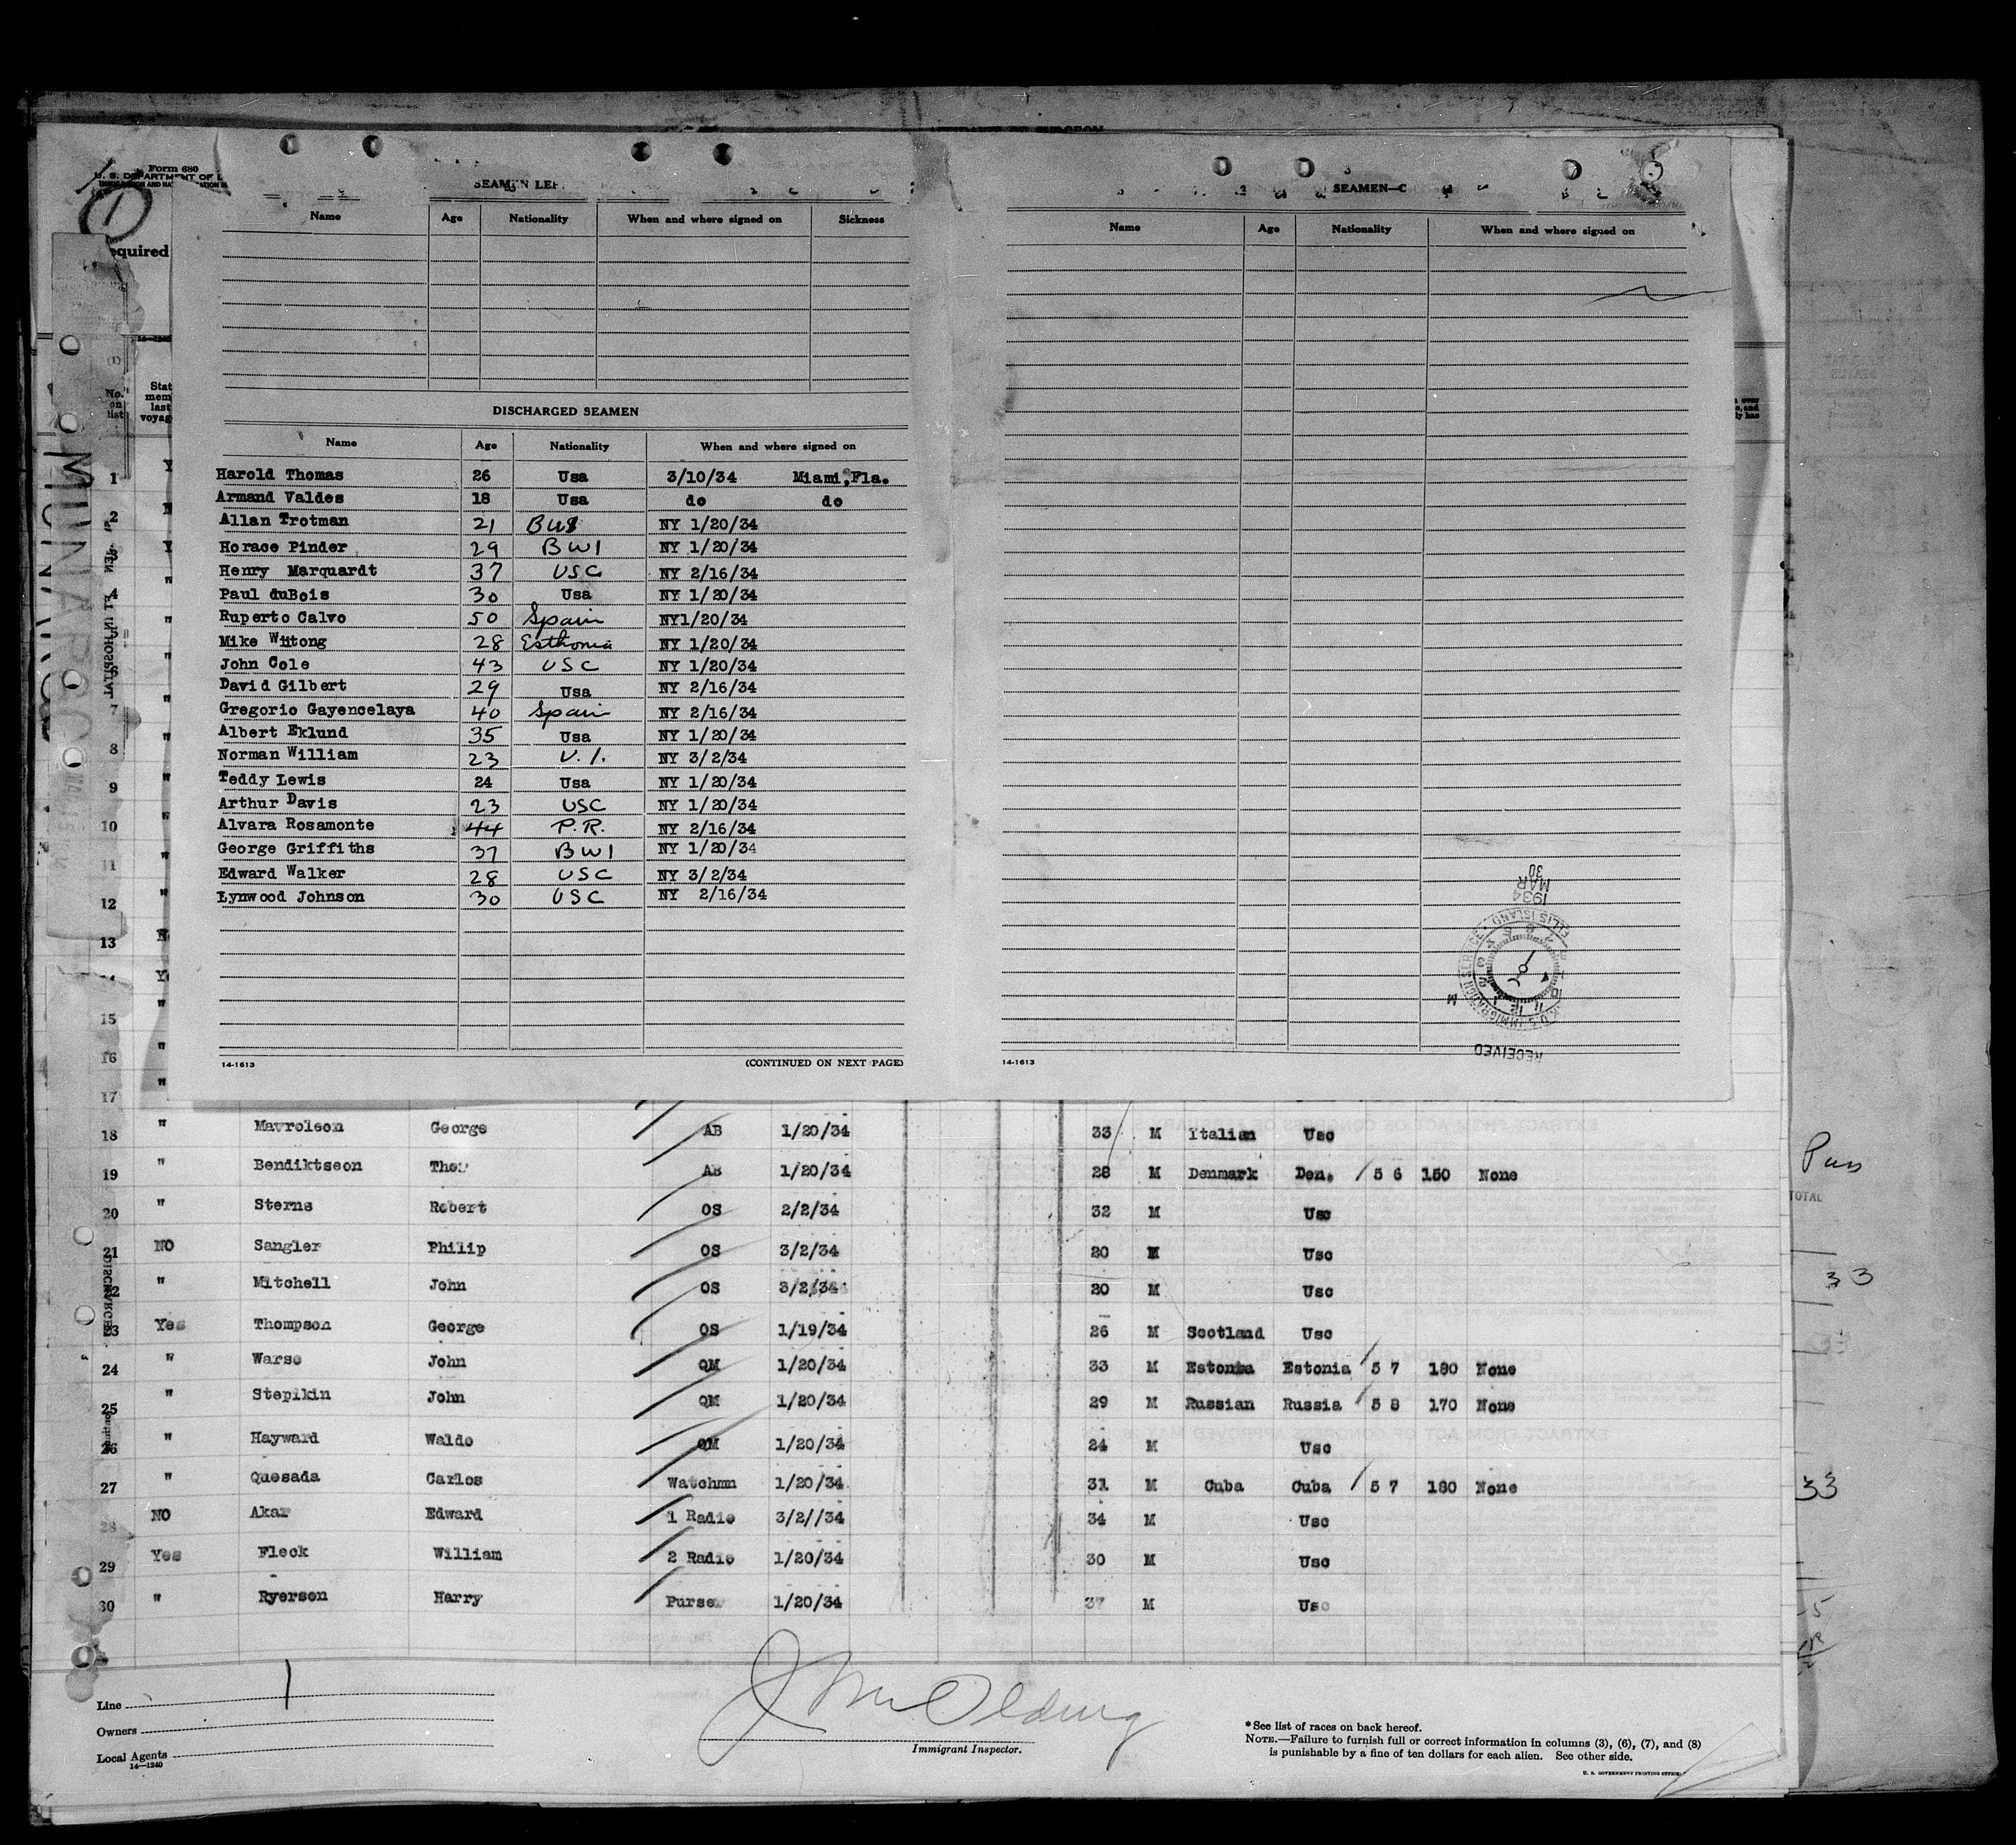 Form 680
U. S. DEPARTMENT OF
equired
SEAMEN LEF
Name Age Nationality When and where signed on Sickness
SEAMEN—C
Name Age Nationality When and where signed on
No. on list
Stat
mem
last
voyag
DISCHARGED SEAMEN
Name Age Nationality When and where signed on
Harold Thomas 26 Usa 3/10/34 Miami,Fla.
Armand Valdes 18 Usa do do
Allan Trotman 21 BWI NY 1/20/34
Horace Pinder 29 BWI NY 1/20/34
Henry Marquardt 37 USC NY 2/16/34
Paul duBois 30 Usa NY 1/20/34
Ruperto Calvo 50 Spain NY1/20/34
Mike Wiitong 28 Esthonia NY 1/20/34
John Cole 43 USC NY 1/20/34
David Gilbert 29 Usa NY 2/16/34
Gregorio Gayencelaya 40 Spain NY 2/16/34
Albert Eklund 35 Usa NY 1/20/34
Norman William 23 V.I. NY 3/2/34
Teddy Lewis 24 Usa NY 1/20/34
Arthur Davis 23 USC NY 1/20/34
Alvara Rosamonte 44 P.R. NY 2/16/34
George Griffiths 37 BWI NY 1/20/34
Edward Walker 28 USC NY 3/2/34
Lynwood Johnson 30 USC NY 2/16/34
14-1613 (CONTINUED ON NEXT PAGE)
14-1613
1934 MAR 30
U. S. IMMIGRATION SERVICE ELLIS ISLAND
RECEIVED
18 " Mavroleon George AB 1/20/34 33 M Italian Usc
19 " Bendiktseon Thor AB 1/20/34 28 M Denmark Den. 5 6 150 None
20 " Sterns Robert OS 2/2/34 32 M Usc
21 NO Sangler Philip OS 3/2/34 20 M Usc
22 " Mitchell John OS 3/2/34 20 M Usc
23 Yes Thompson George OS 1/19/34 26 M Scotland Usc
24 " Warse John QM 1/20/34 33 M Estonia Estonia 5 7 180 None
25 " Stepikin John QM 1/20/34 29 M Russian Russia 5 8 170 None
26 " Hayward Waldo QM 1/20/34 24 M Usc
27 " Quesada Carlos Watchmn 1/20/34 31 M Cuba Cuba 5 7 180 None
28 NO Akar Edward 1 Radio 3/2//34 34 M Usc
29 Yes Fleck William 2 Radio 1/20/34 30 M Usc
30 " Ryerson Harry Purser 1/20/34 37 M Usc
TOTAL
33
33
Line
Owners
Local Agents
14—1240
Immigrant Inspector.
* See list of races on back hereof.
NOTE.—Failure to furnish full or correct information in columns (3), (6), (7), and (8)
is punishable by a fine of ten dollars for each alien. See other side.
U. S. GOVERNMENT PRINTING OFFICE